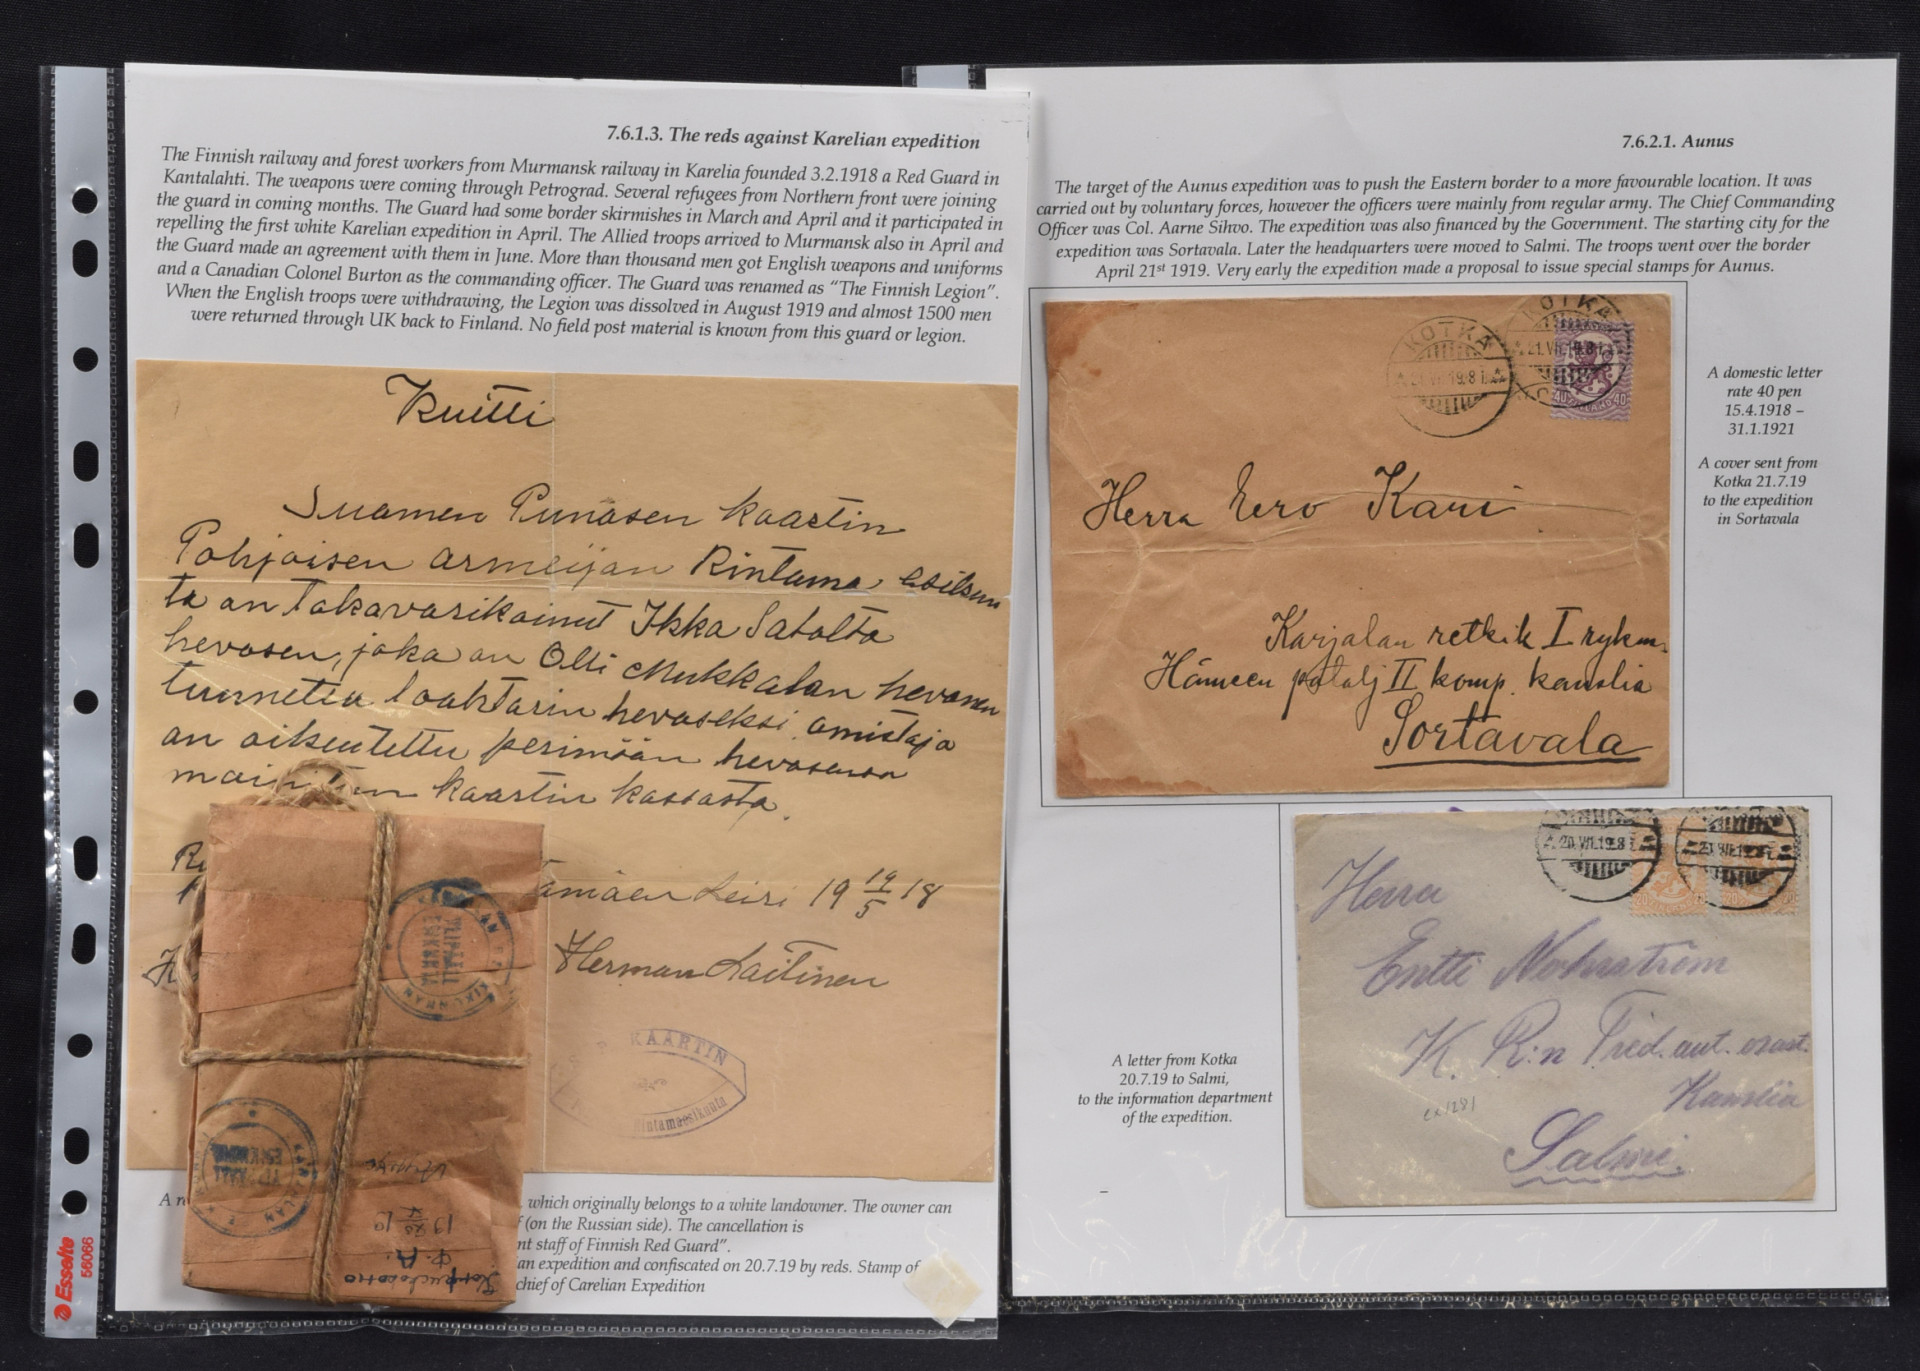 7.6.1.3. The reds against Karelian expedition
The Finnish railway and forest workers from Murmansk railway in Karelia founded 3.2.1918 a Red Guard in
Kantalahti. The weapons were coming through Petrograd. Several refugees from Northern front were joining
the guard in coming months. The Guard had some border skirmishes in March and April and it participated in
repelling the first white Karelian expedition in April. The Allied troops arrived to Murmansk also in April and
the Guard made an agreement with them in June. More than thousand men got English weapons and uniforms
and a Canadian Colonel Burton as the commanding officer. The Guard was renamed as "The Finnish Legion".
When the English troops were withdrawing, the Legion was dissolved in August 1919 and almost 1500 men
were returned through UK back to Finland. No field post material is known from this guard or legion.
Kuitti
Suomen Punasen kaartin
Pohjoisen armeijan Rintama esikun
ta on takavarikoinut Ikka Satolta
hevosen, joka on Olli Mukkalan hevonen
tunnettu lahtarin hevoseksi. omistaja
on oikeutettu perimään hevosensa
kaartin kassasta.
Leiri 19 19/5 18
Herman Laitinen
KAARTIN
Rintamaesikunta
YLIPÄÄLL
A re
which originally belongs to a white landowner. The owner can
(on the Russian side). The cancellation is
nt staff of Finnish Red Guard".
an expedition and confiscated on 20.7.19 by reds. Stamp of
chief of Carelian Expedition
Esselte
56066
7.6.2.1. Aunus
The target of the Aunus expedition was to push the Eastern border to a more favourable location. It was
carried out by voluntary forces, however the officers were mainly from regular army. The Chief Commanding
Officer was Col. Aarne Sihvo. The expedition was also financed by the Government. The starting city for the
expedition was Sortavala. Later the headquarters were moved to Salmi. The troops went over the border
April 21st 1919. Very early the expedition made a proposal to issue special stamps for Aunus.
KOTKA
KOTKA
21.VII.19.8
40 40
Herra Eero Kari
Karjalan retkik I rykm.
Hämeen patalj II komp. kanslia
Sortavala
A domestic letter
rate 40 pen
15.4.1918 –
31.1.1921
A cover sent from
Kotka 21.7.19
to the expedition
in Sortavala
20.VII.19.8
Herra
Entti Nohrström
K. R:n Tied. ant. osast.
Kanslia
Salmi.
ex1281
A letter from Kotka
20.7.19 to Salmi,
to the information department
of the expedition.